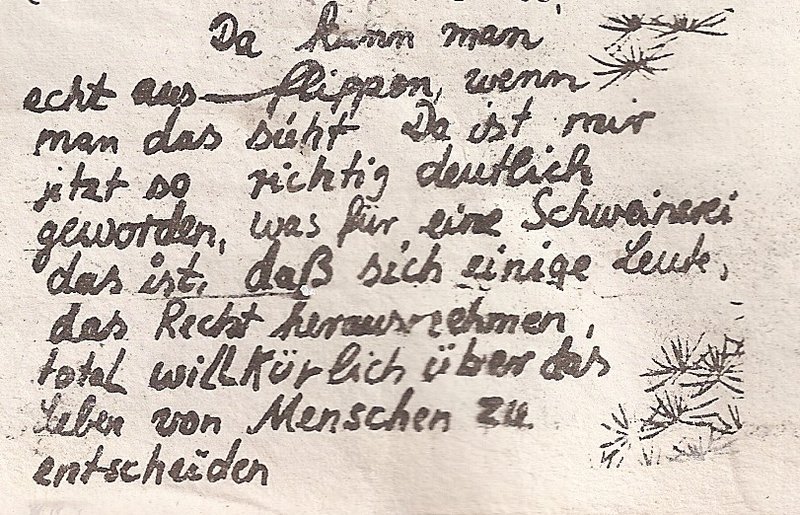 Da kann man
echt aus—flippen, wenn
man das sieht Da ist mir
jetzt so richtig deutlich
geworden, was für eine Schweinerei
das ist, daß sich einige Leute,
das Recht herausnehmen,
total willkürlich über das
Leben von Menschen zu
entscheiden